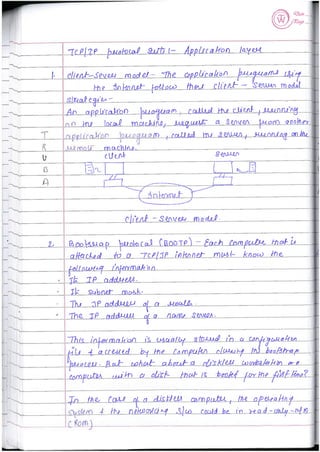 TCP/IP protocol suite :- Application layer
1. client-server model - The application programs using
the Internet follow these client - server model
strategies -
An application program, called the client, running
on the local machine, request a server from another
application program, called the server, running on the
remote machine.
T
R
U
B
A
client
Server
Internet
client - server model
2. Bootstrap protocal (BOOTP) - Each computer that is
attached to a TCP/IP internet must know the
following information.
· Its IP address.
· Its subnet mask.
· The IP address of a router.
· The IP address of a name server.
This information is usually stored in a configuration
file & accessed by the computer during the bootstrap
process. But what about a diskless workstation or a
computer with a disk that is booted for the first time?
In the case of a diskless computer, the operating
system & the networking S/w could be in read-only-m
(ROM)